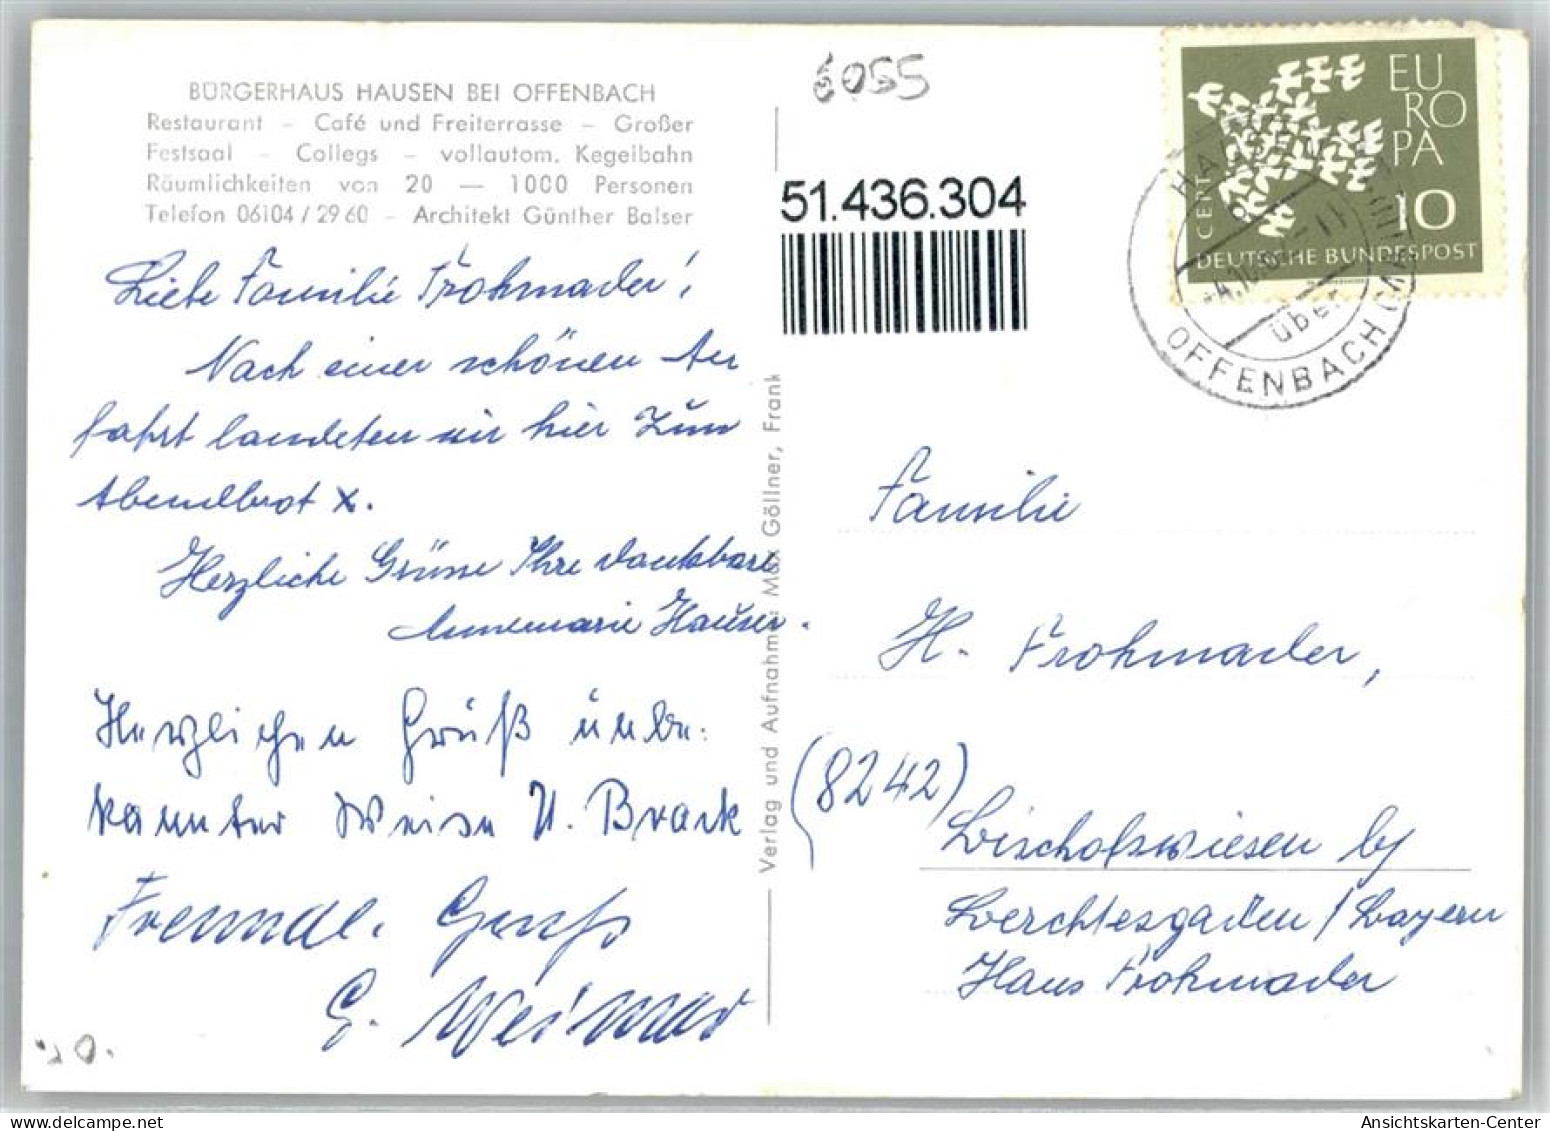 BÜRGERHAUS HAUSEN BEI OFFENBACH
Restaurant – Café und Freiterrasse – Großer
Festsaal – Collegs – vollautom. Kegelbahn
Räumlichkeiten von 20 — 1000 Personen
Telefon 06104 / 29 60 – Architekt Günther Balser
Liebe Familie Frohmader!
Nach einer schönen An
fahrt landeten wir hier zum
Abendbrot x.
Herzliche Grüsse Ihre dankbare
Annemarie Hauser.
Herzlichen Gruß unbe-
kannter Weise U. Brack
Freundl. Gruß
G. Weimar
Verlag und Aufnahme: Max Göllner, Frank
6055
51.436.304
EUROPA
10
CENT
DEUTSCHE BUNDESPOST
HAUSEN
über
OFFENBACH (MAIN)
Familie
H. Frohmader,
(8242)
Bischofswiesen b/
Berchtesgaden / Bayern
Haus Frohmader
Ansichtskarten-Center